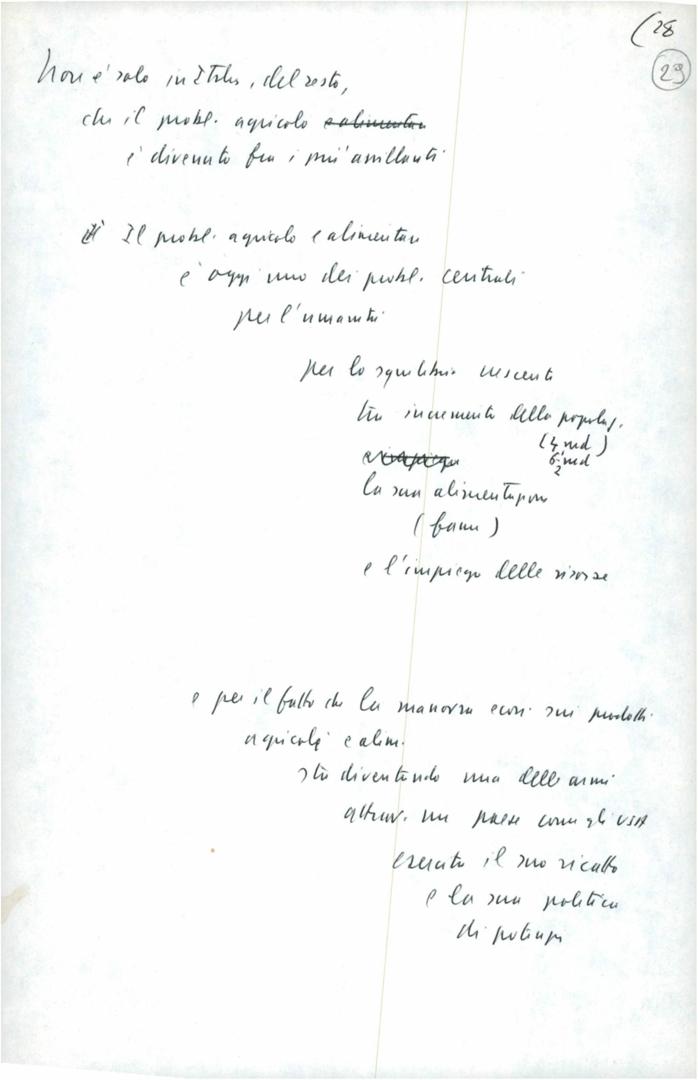 (28
29
Non è solo in Italia, del resto,
che il probl. agricolo e alimentare
è divenuto fra i più assillanti
Il probl. agricolo e alimentare
è oggi uno dei probl. centrali
per l'umanità
per lo squilibrio crescente
tra incremento della popolaz.
(4 md)
6 md
2
la sua alimentazione
(fame)
e l'impiego delle risorse
e per il fatto che la manovra econ. sui prodotti
agricoli e alim.
sta diventando una delle armi
attrav. cui un paese come gli USA
esercita il suo ricatto
e la sua politica
di potenza